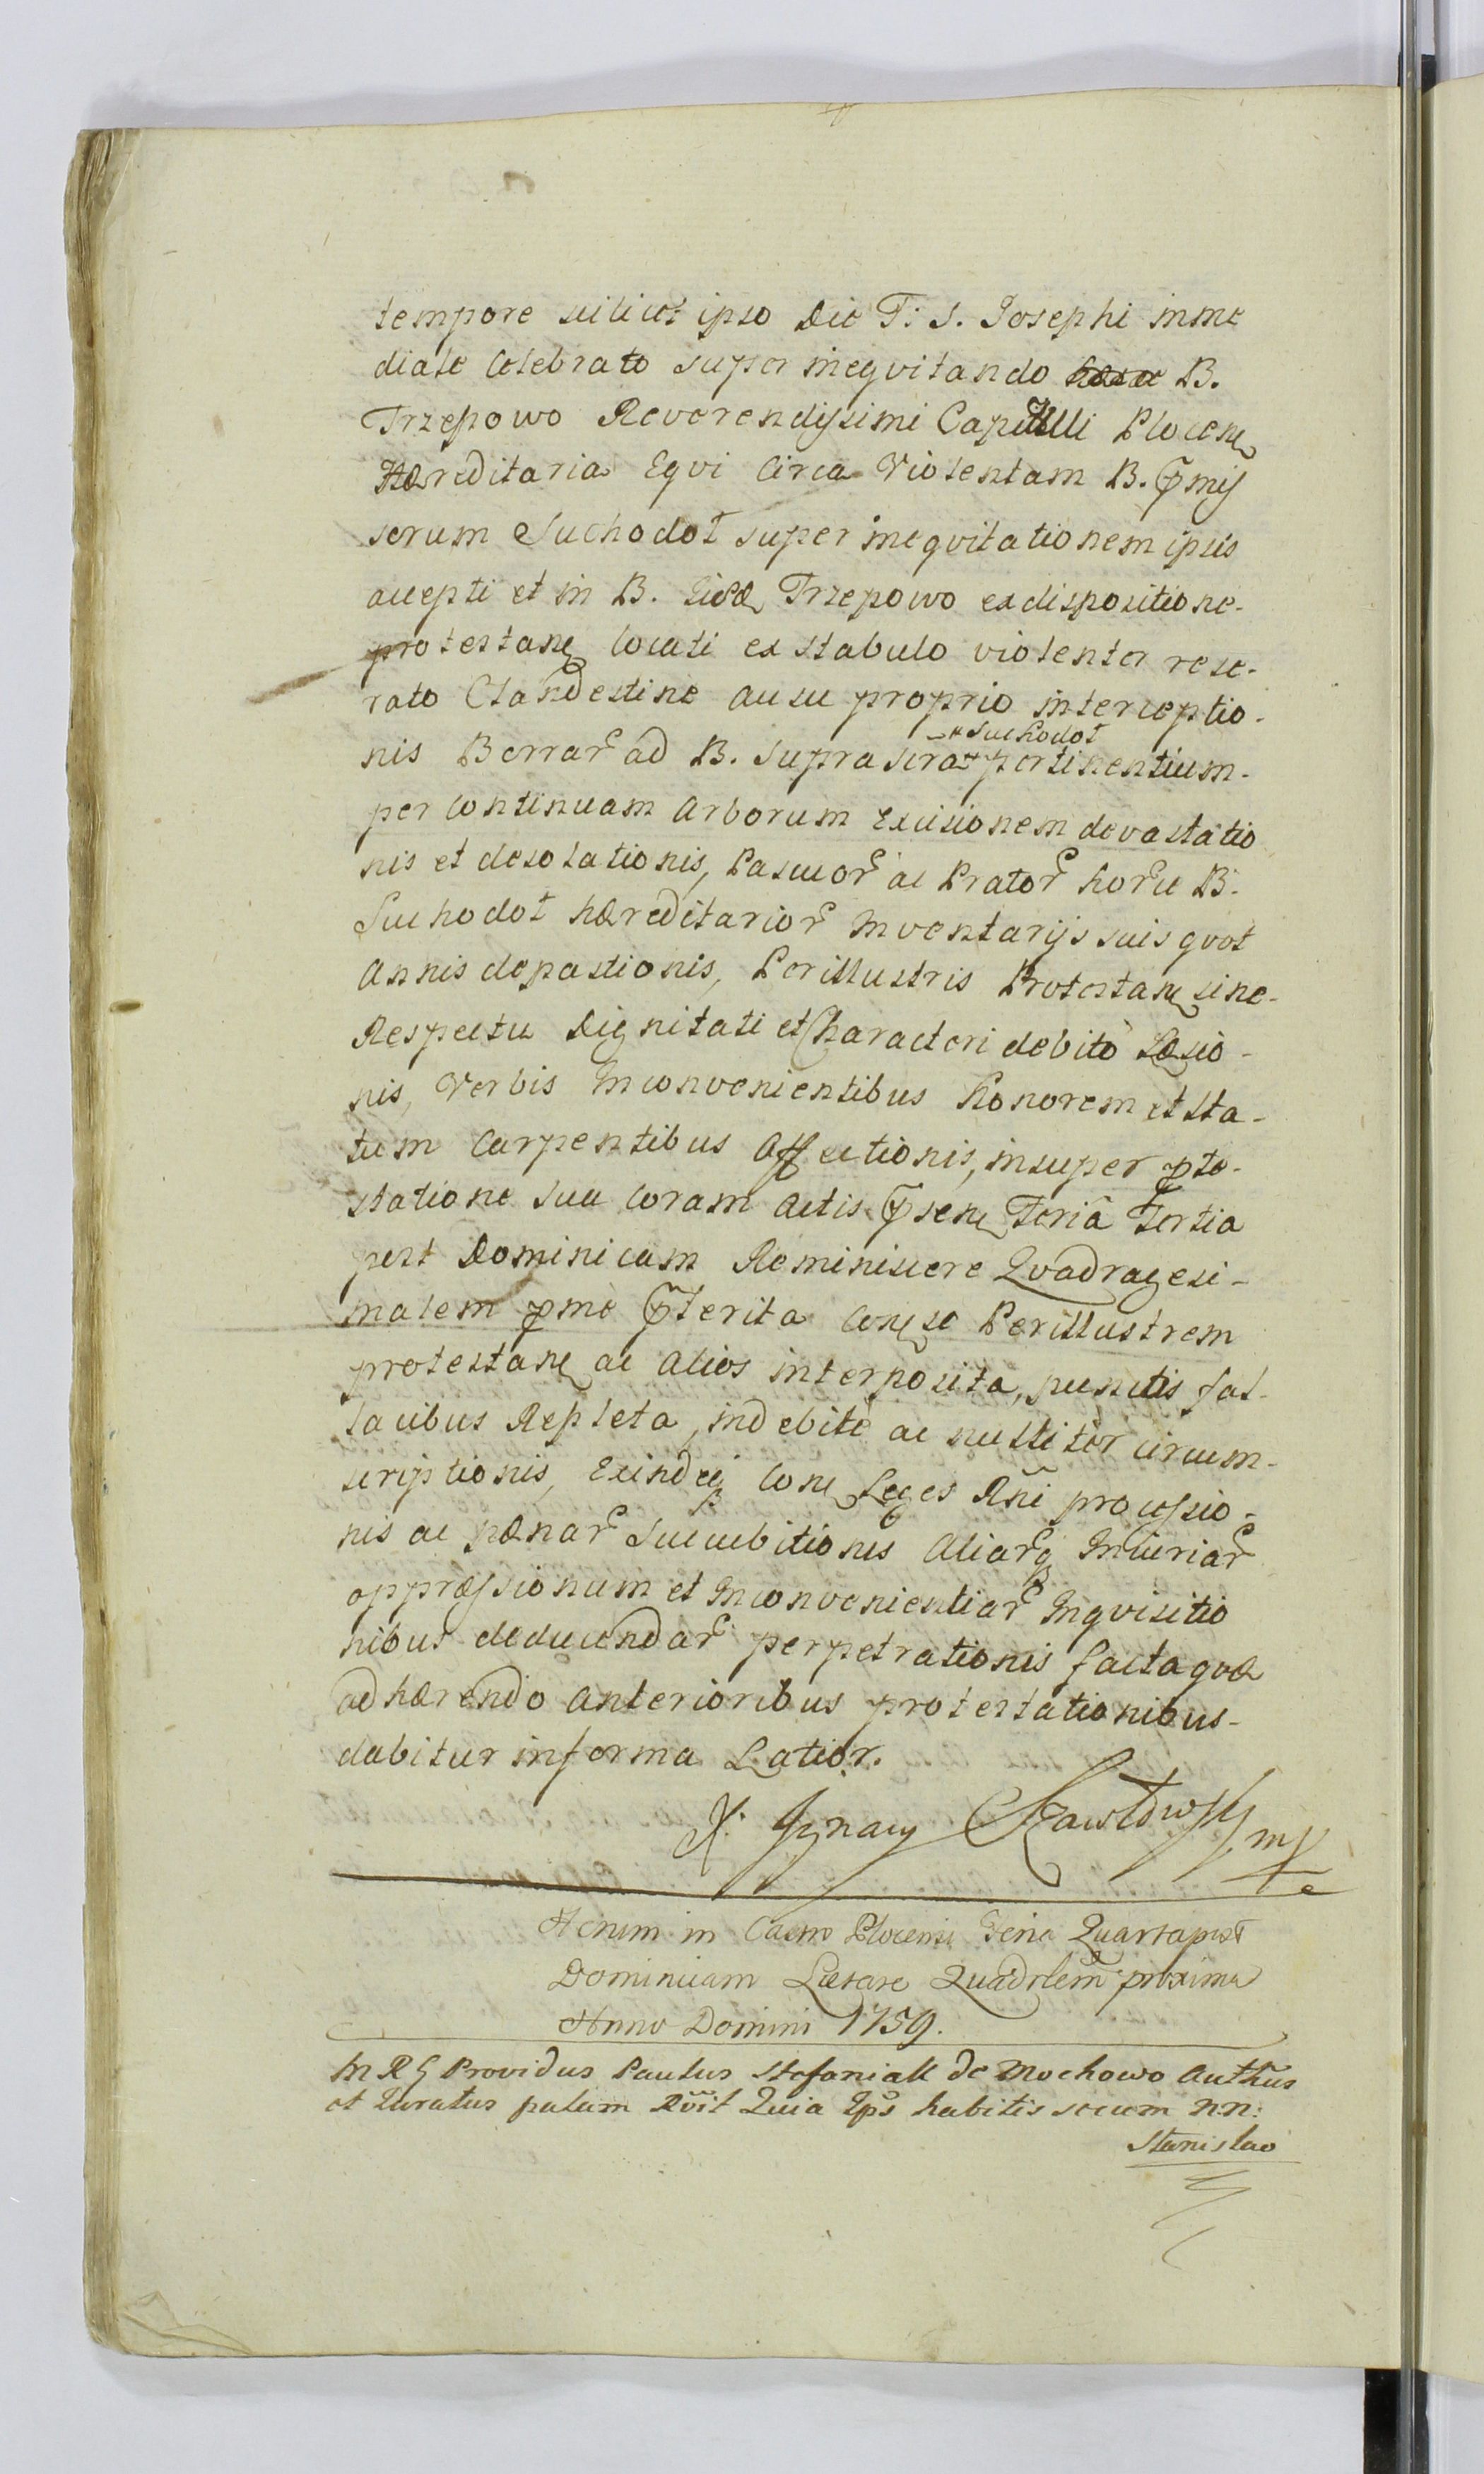 tempore scilicet ipso Die F: S. Josephi imme
diate Celebrato super ineqvitando B.
Trzepowo Reverendissimi Capitulli Plocen
Hæreditaria Eqvi Circa Violentam B. Pmis
sorum Suchodoł super ineqvitationem ipsis
accepti et in B. Eisd Trzepowo ex dispositione-
protestan locati ex stabulo violenter rese-
rato Clandestine ausu proprio interceptio-
nis Borrar ad B. supra scrat Suchodoł pertinentium-
per Continuam Arborum Excisionem devastatio
nis et desolationis, Pascuor ac Prator horu B.
Suchodoł hæreditarior Inventarijs suis qvot
Annis depastionis, Perillustris Protestan sine-
Respectu Dignitati et Characteri debito Læsio-
nis, Verbis Inconvenientibus Honorem et Sta-
tum Carpentibus Affectionis, insuper pte-
statione sua Coram Actis Psen Feriâ Tertia
post Dominicam Reminiscere Qvadragesi-
malem pme Pterita Con se Perillustrem
protestan ac Alios interposita, punctis fal-
lacibus Repleta, indebitè ac nullitèr circum-
scriptionis, Exindeq Con Leges Rni processio-
nis ac pænar Succubitionis Aliarq Iniuriar
oppræssionum et Inconvenientiar Inqvisitio
nibus deducendar perpetrationis facta qvæ
adhærendo Anterioribus protestationibus-
dabitur in forma Latior.
X. Ignacy
Actum in Castro Plocensi Feria Quarta post
Dominicam Lætare Quadrlem proxima
Anno Domini 1759.
In R G Providus Paulus Stefaniak de Mochowo Authus
et Iuratus palam Rvit Quia Ips habitis secum nn:
Stanislao